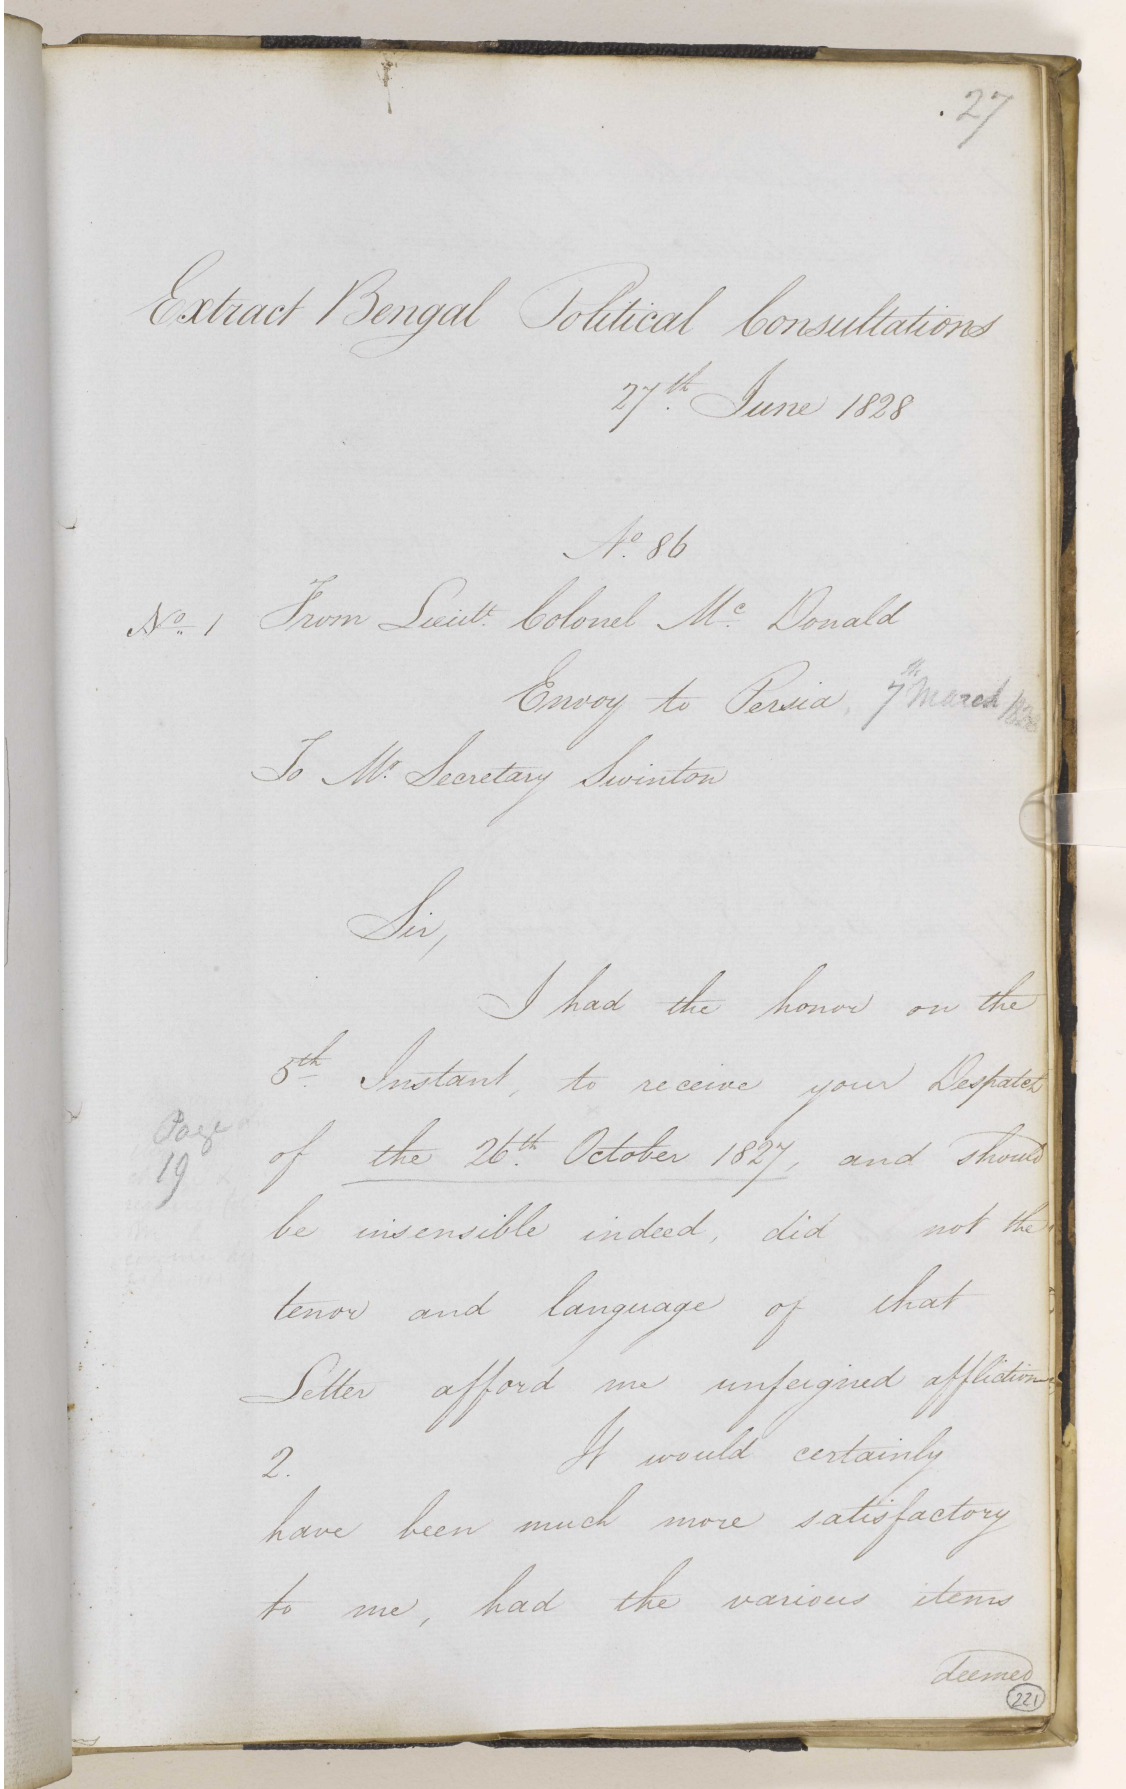 27
Extract Bengal Political Consultations
27th. June 1828
No. 86
No. 1 From Lieutt. Colonel Mc. Donald
Envoy to Persia, 7th March 1828
To Mr. Secretary Swinton
Sir,
I had the honor on the
5th. Instant, to receive your Despatch
Page
19
of the 26th. October 1827, and should
be insensible indeed, did not the
tenor and language of that
Letter afford me unfeigned affliction
2. It would certainly
have been much more satisfactory
to me, had the various items
deemed
221